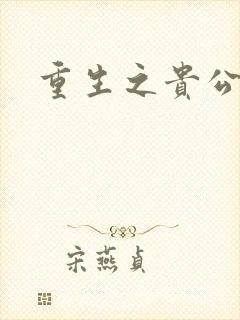 重生之貴公
宋燕貞